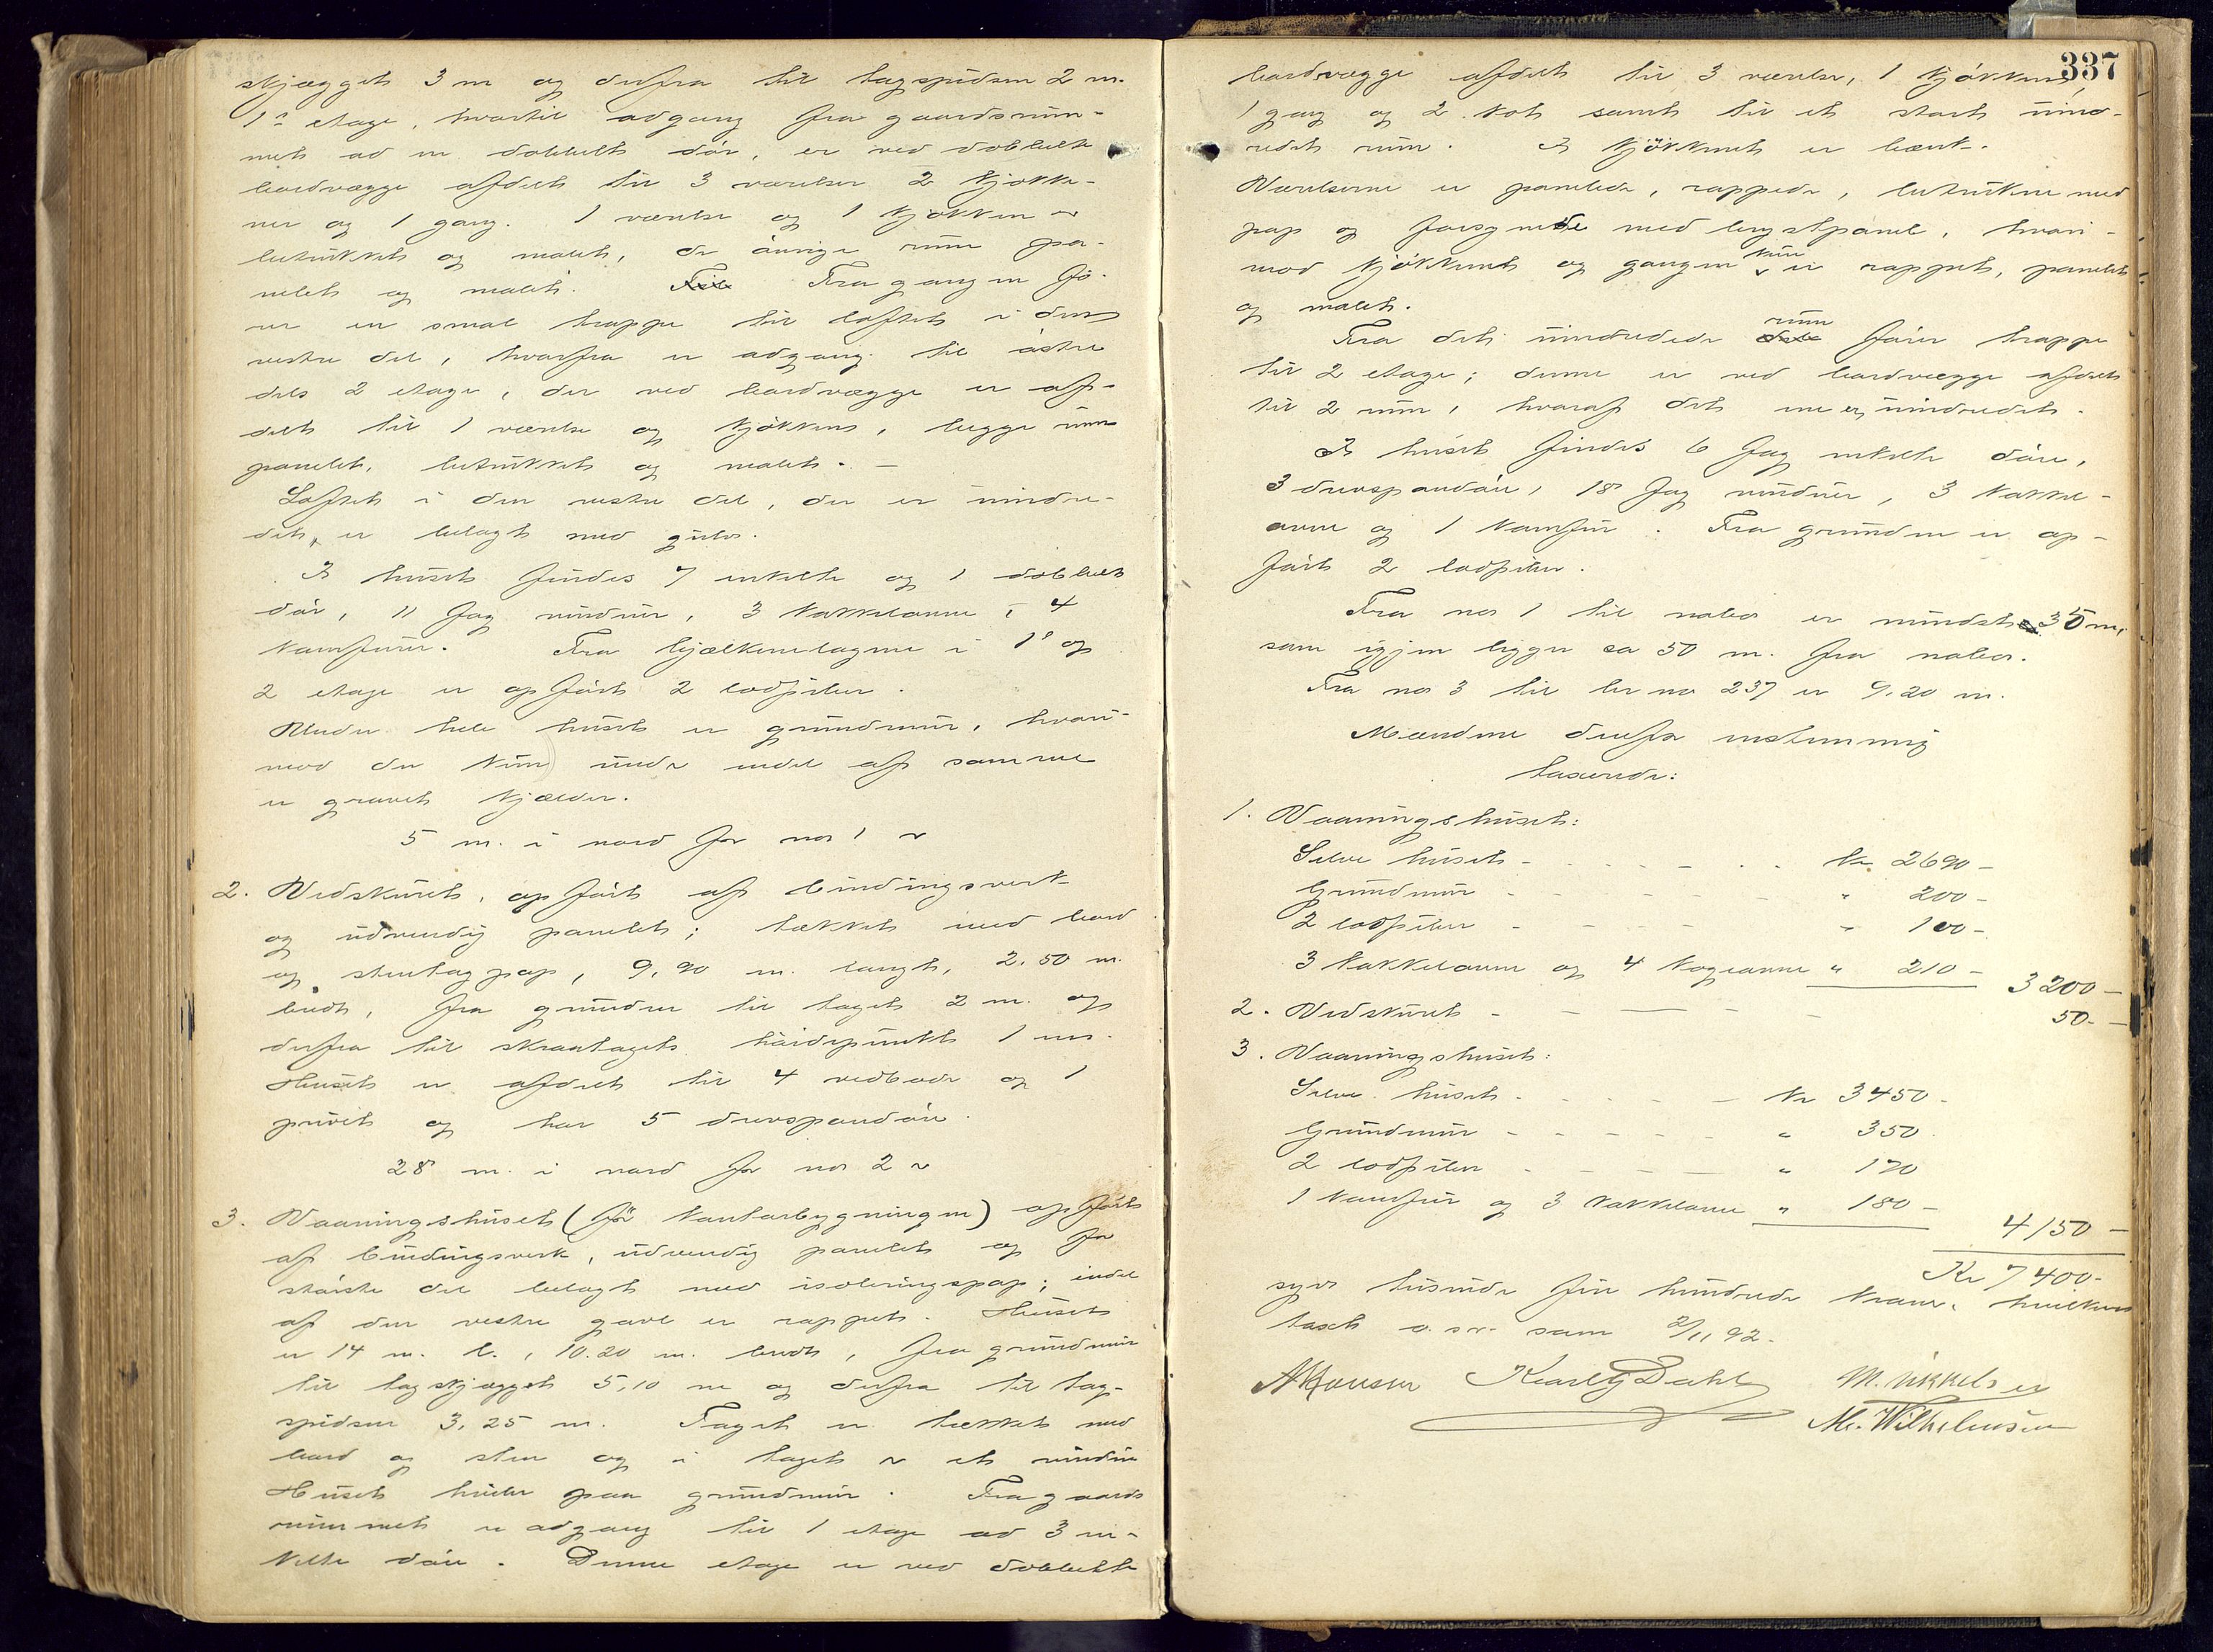 skjægget 3 m og derfra til tagspidsen 2 m.
1ste etage, hvortil adgang fra gaardsrum-
met ad en dobbelt dör, er ved dobbelte
bordvægge afdelt til 3 værelser 2 kjökke-
ner og 1 gang. 1 værelse og 1 kjökken er
betrukket og malet, de övrige rum pa-
nelet og malet. Fra gangen fö-
rer en smal trappe til loftet i den
vestre del, hvorfra er adgang til östre
dels 2 etage, der ved bordvægge er af-
delt til 1 værelse og kjökken, begge rum
panelet, betrukket og malet. —
Loftet i den vestre del, der er uindre-
det, er belagt med gulv.
I huset findes 7 enkelte og 1 dobbelt
dör, 11 fag vinduer, 3 kakkelovne, 4
komfurer. Fra bjælkerlagene i 1ste og
2 etage er opfört 2 lodpiber.
Under hele huset er grundmur, hvori-
mod der kun under endel af samme
er gravet kjælder.
5 m. i nord for no 1 er
2. Vedskuret, opfört af bindingsverk
og udvendig panelet; tækket med bord
og stentagpap, 9,90 m. langt, 2.50 m.
bredt, fra grunden til taget 2 m. og
derfra til skraatagets höidepunkt 1 m.
Huset er afdelt til 4 vedboder og 1
privet og har 5 druspandöre.
28 m. i nord for no 2 er
3. Vaaningshuset (för kontorbygningen) opfört
af bindingsverk, udvendig panelet og for
störste del belagt med isoleringspap; endel
af den vestre gavl er rappet. Huset
er 14 m. l., 10.20 m. bredt, fra grundmur
til tagskjægget 5,10 m og derfra til tag-
spidsen 3,25 m. Taget er tækket med
bord og sten og i taget er et vindue
Huset hviler paa grundmur. Fra gaards
rummet er adgang til 1 etage ad 3 en-
kelte döre. Denne etage er ved dobbelte
337
bordvægge afdelt til 3 værelser, 1 kjökken,
1 gang og 2 kot samt til et stort uind-
redet rum. I kjökkenet er bænk.
Værelserne er panelede, rappede, betrukne med
pap og forsynede med brystpanel, hvori-
mod kjökkenet og gangen kun er rappet, panelet
og malet.
Fra det uindredede rum förer trappe
til 2 etage; denne er ved bordvægge afdelt
til 2 rum, hvoraf det ene er uindredet.
I huset findes 6 fag enkelte döre,
3 druspandöre, 18 fag vinduer, 3 kakkel-
ovne og 1 komfur. Fra grunden er op-
fört 2 lodpiber.
Fra no 1 til nabo er mindst 35 m,
som igjen ligger ca 50 m. fra nabo.
Fra no 3 til br no 237 er 9.20 m.
Mændene derefter enstemmig
taxerede:
1. Vaaningshuset:
Selve huset - Kr 2690 -
Grundmur - " 200 -
2 lodpiber - " 100 -
3 kakkelovne og 4 kogeovne " 210 - 3200 -
2. Vedskuret - 50. -
3. Vaaningshuset:
Selve huset - Kr 3450 -
Grundmur - " 350
2 lodpiber - " 170
1 komfur og 3 kakkelovne " 180 - 4150 -
Kr 7400 -
syv tusinde fire hundrede kroner, hvilken
taxt o. sv. som 2/11 92.
A Monsen Karl G Dahl M. Mikkelsen
M. Wilhelmsen